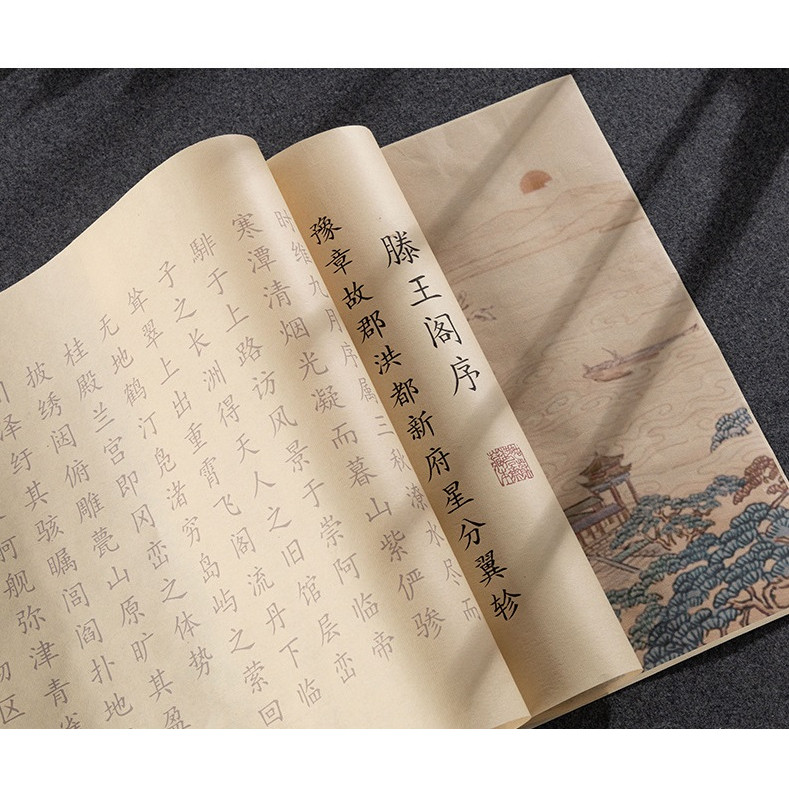 滕王阁序
豫章故郡洪都新府星分翼轸
时维九月序属三秋潦水尽而
寒潭清烟光凝而暮山紫俨骖
騑于上路访风景于崇阿临帝
子之长洲得天人之旧馆层峦
耸翠上出重霄飞阁流丹下临
无地鹤汀凫渚穷岛屿之萦回
桂殿兰宫即冈峦之体势
披绣闼俯雕甍山原旷其盈
川泽纡其骇瞩闾阎扑地
舸舰弥津青雀
区